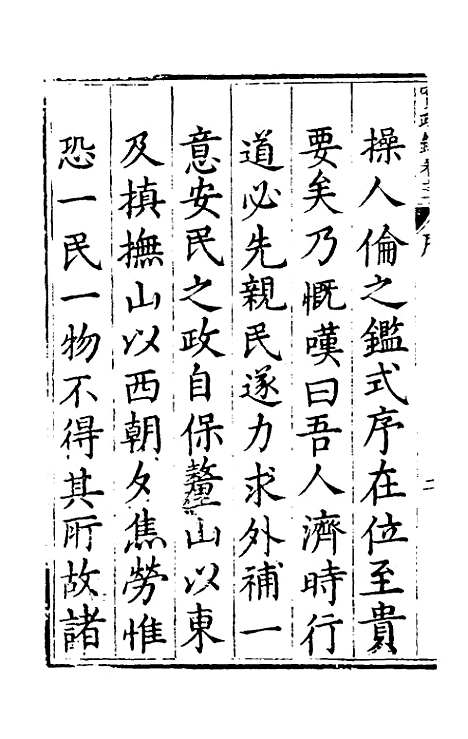 操人倫之鑑式序在位至貴
要矣乃慨嘆曰吾人濟時行
道必先親民遂力求外補一
意安民之政自保釐山以東
及槙撫山以西朝夕焦勞惟
恐一民一物不得其所故諸